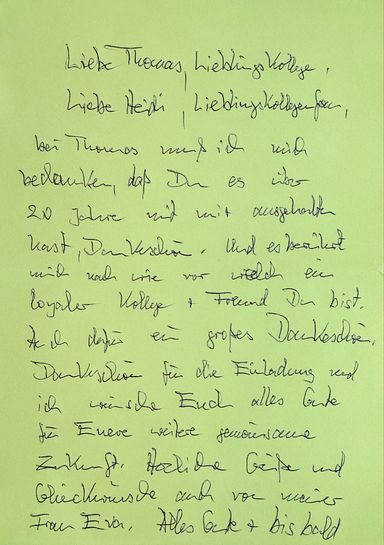 Liebe Thomas, Lieblingskollege,
Liebe Heidi, Lieblingskollegenfrau,
bei Thomas muß ich mich
bedanken, daß Du es über
20 Jahre mit mir ausgehalten
hast, Dankeschön. Und es berührt
mich nach wie vor welch ein
loyaler Kollege + Freund Du bist.
Auch dafür ein großes Dankeschön.
Dankeschön für die Einladung und
ich wünsche Euch alles Gute
für Euere weitere gemeinsame
Zukunft. Herzliche Grüße und
Glückwünsche auch von meiner
Frau Eva. Alles Gute + bis bald